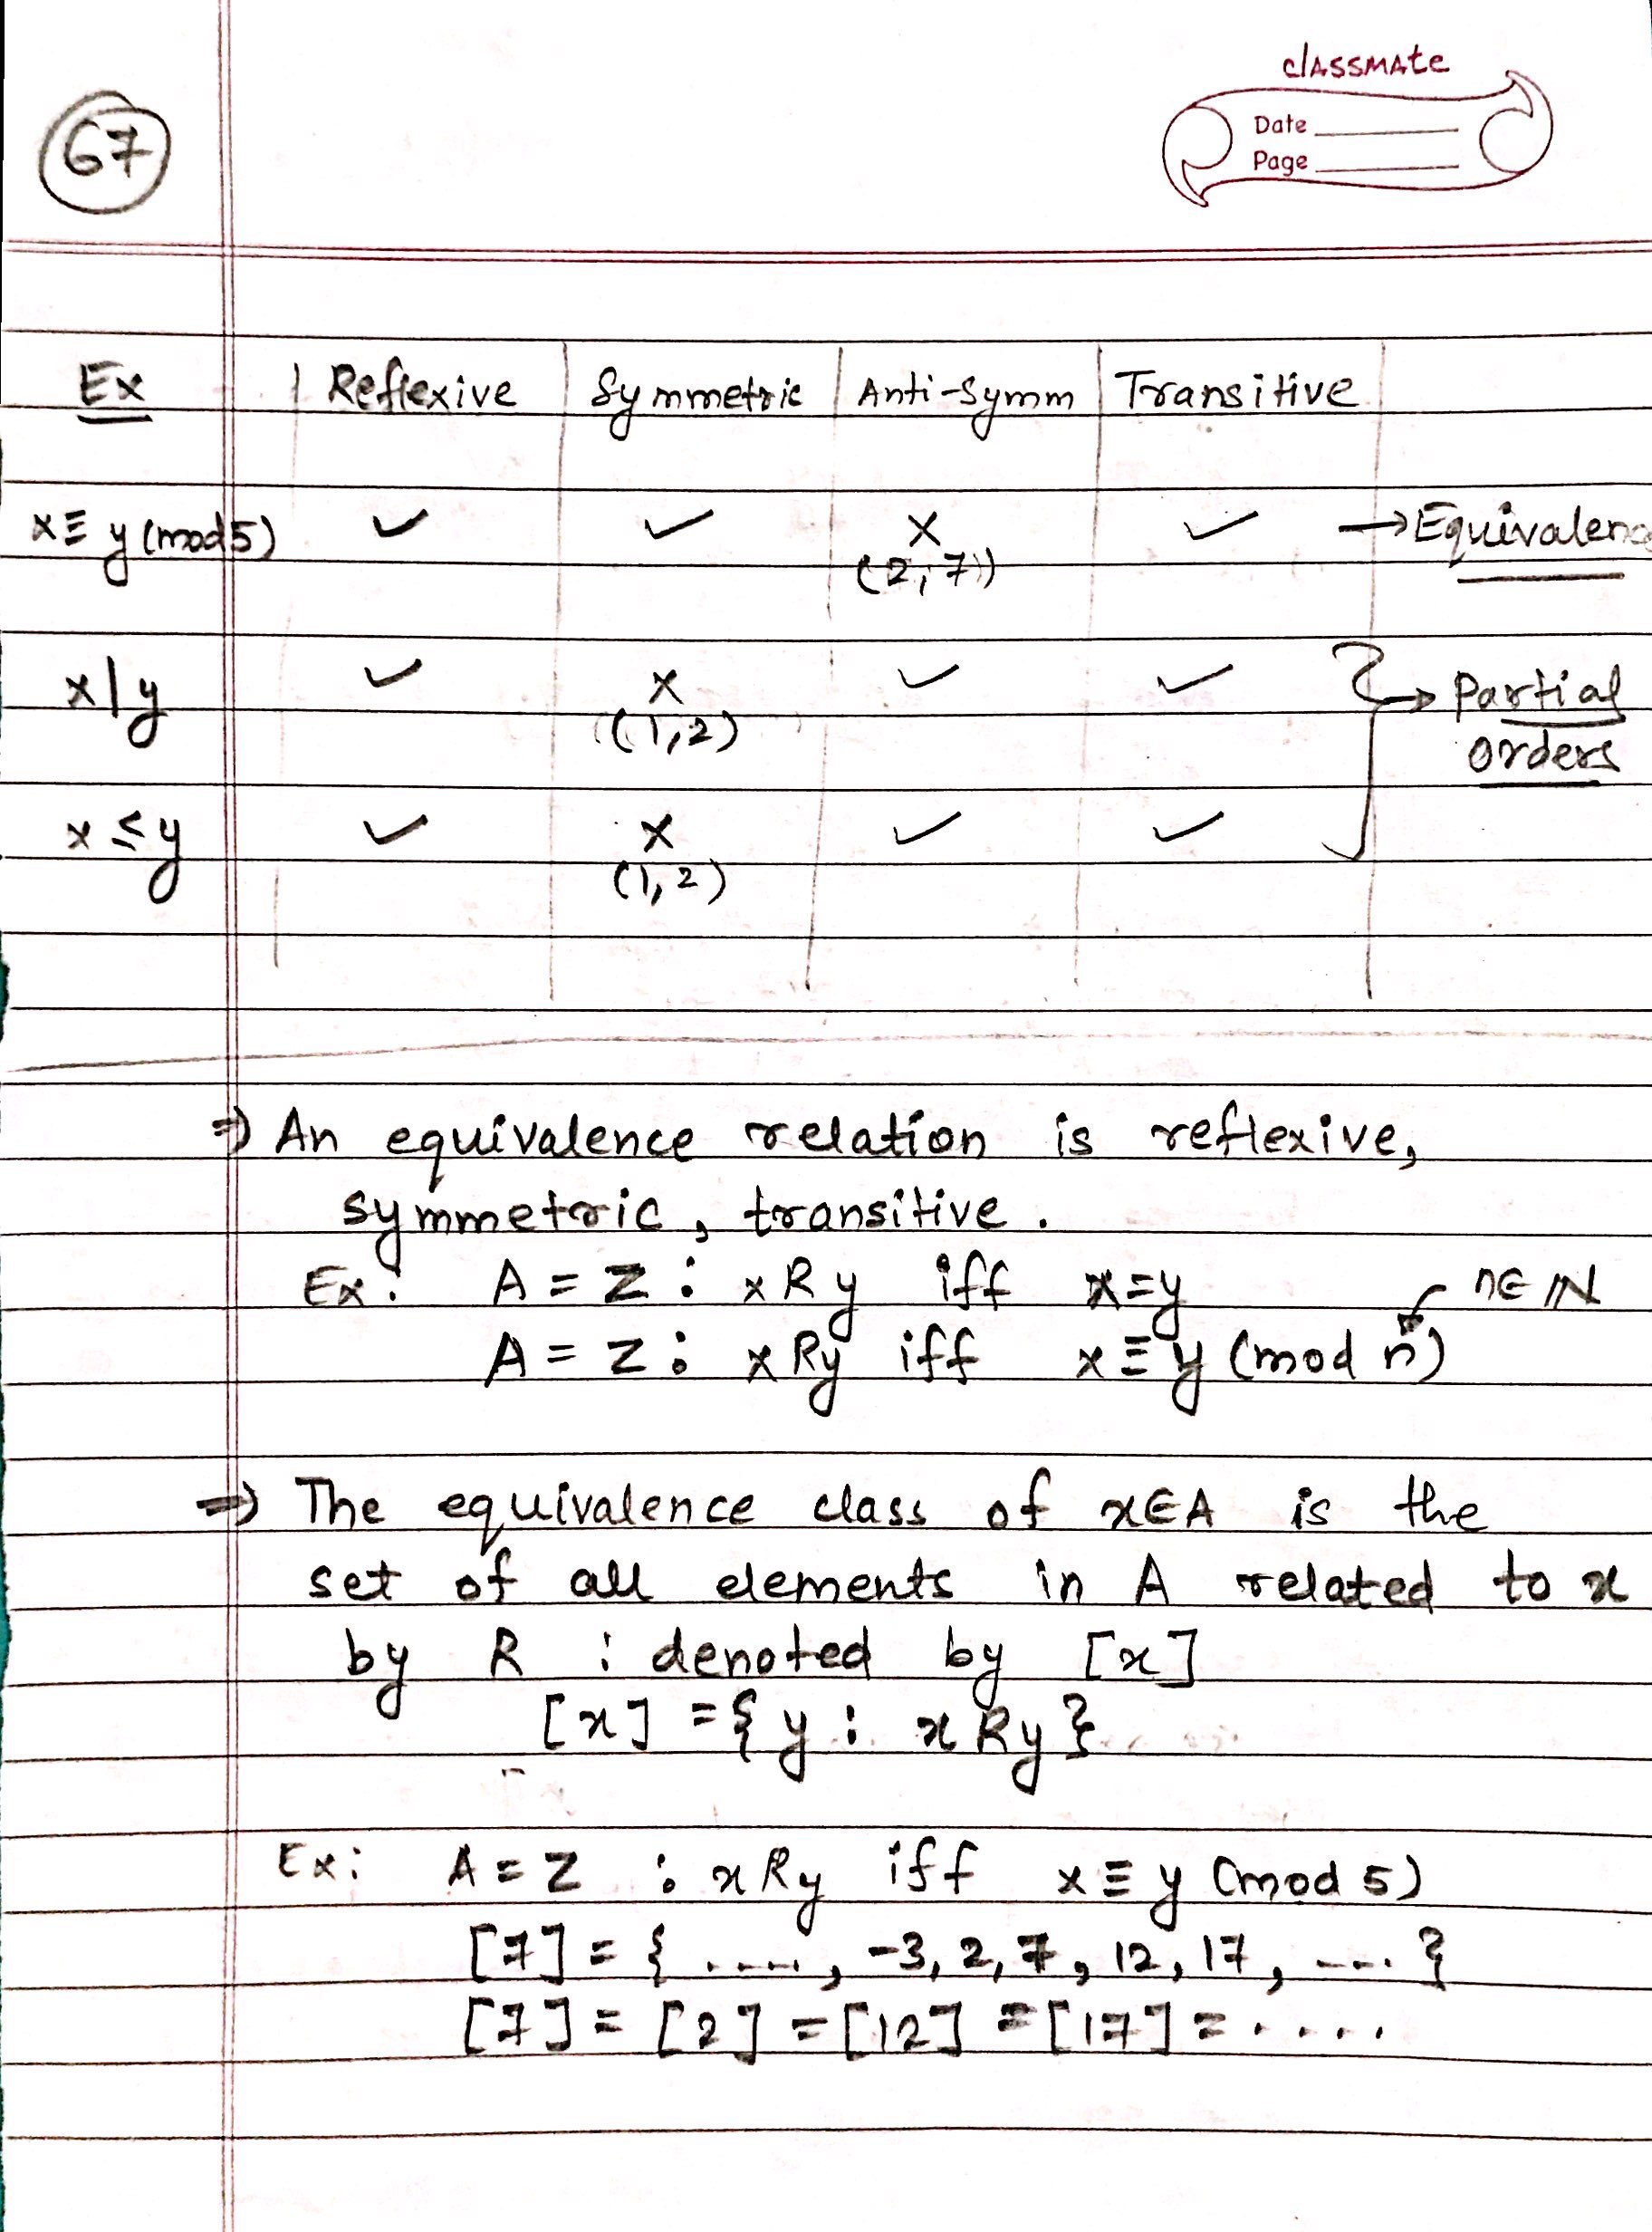 67
classmate
Date
Page
Ex | Reflexive | Symmetric | Anti-Symm | Transitive
x ≡ y (mod 5) ✓ ✓ x ✓ → Equivalenc
(2, 7)
x | y ✓ x ✓ ✓ → Partial
(1, 2) orders
x ≤ y ✓ x ✓ ✓
(1, 2)
⇒ An equivalence relation is reflexive,
symmetric, transitive.
Ex: A = Z : x R y iff x = y n ∈ ℕ
A = Z : x R y iff x ≡ y (mod n)
⇒ The equivalence class of x ∈ A is the
set of all elements in A related to x
by R : denoted by [x]
[x] = { y : x R y }
Ex: A = Z : x R y iff x ≡ y (mod 5)
[7] = { ....., -3, 2, 7, 12, 17, .... }
[7] = [2] = [12] = [17] = ....